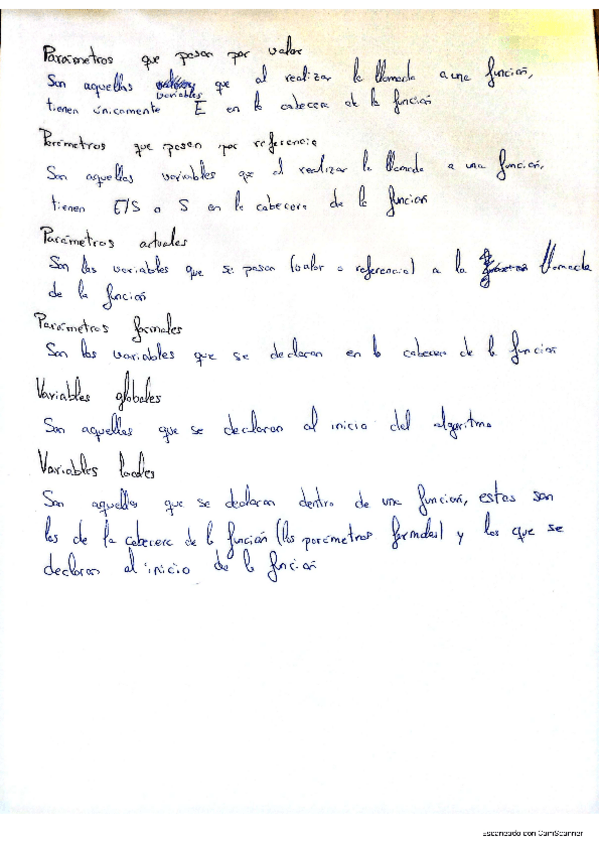 Parámetros que pasan por valor
Son aquellas variables que al realizar la llamada a una función,
tienen únicamente E en la cabecera de la función
Parámetros que pasan por referencia
Son aquellas variables que al realizar la llamada a una función,
tienen E/S o S en la cabecera de la función
Parámetros actuales
Son las variables que se pasan (valor o referencia) a la llamada
de la función
Parámetros formales
Son las variables que se declaran en la cabecera de la función
Variables globales
Son aquellas que se declaran al inicio del algoritmo
Variables locales
Son aquellas que se declaran dentro de una función, estas son
las de la cabecera de la función (los parámetros formales) y las que se
declaran al inicio de la función
Escaneado con CamScanner